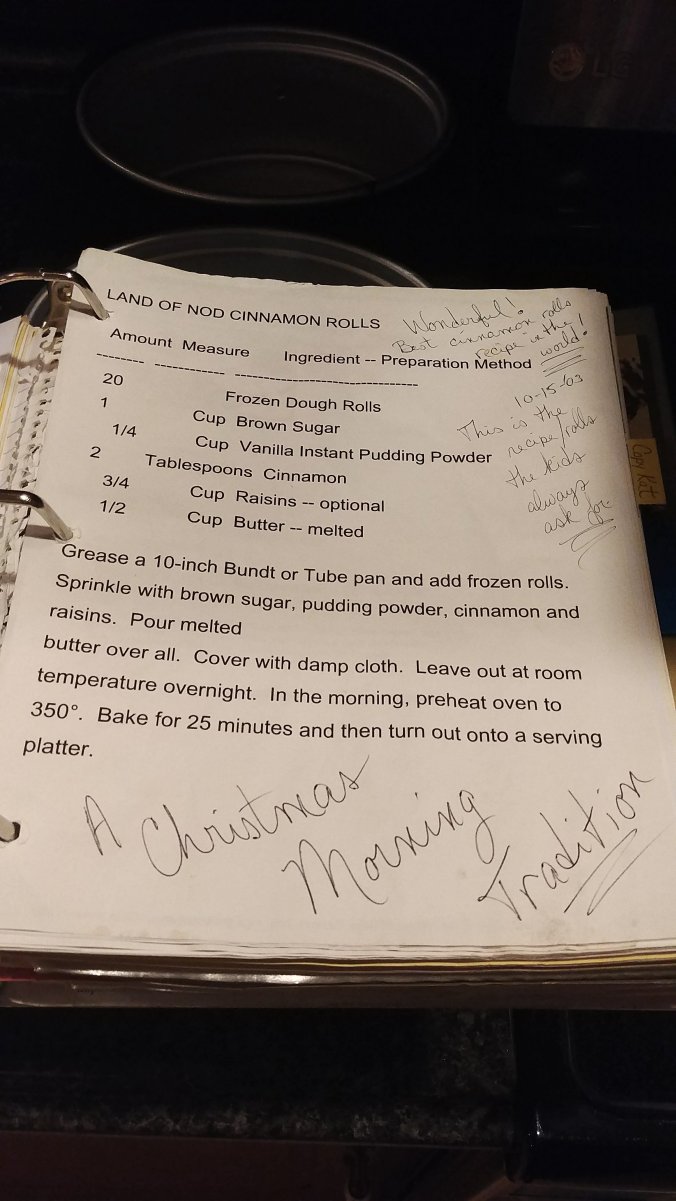 LAND OF NOD CINNAMON ROLLS
Wonderful!
Best cinnamon rolls
recipe in the
world!
Amount Measure Ingredient -- Preparation Method
-------- ------------ --------------------------------
20 Frozen Dough Rolls
1 Cup Brown Sugar
1/4 Cup Vanilla Instant Pudding Powder
2 Tablespoons Cinnamon
3/4 Cup Raisins -- optional
1/2 Cup Butter -- melted
10-15-03
This is the
recipe/rolls
the kids
always
ask for
Grease a 10-inch Bundt or Tube pan and add frozen rolls.
Sprinkle with brown sugar, pudding powder, cinnamon and
raisins. Pour melted
butter over all. Cover with damp cloth. Leave out at room
temperature overnight. In the morning, preheat oven to
350°. Bake for 25 minutes and then turn out onto a serving
platter.
A Christmas
Morning
Tradition
Copy Kat
LG